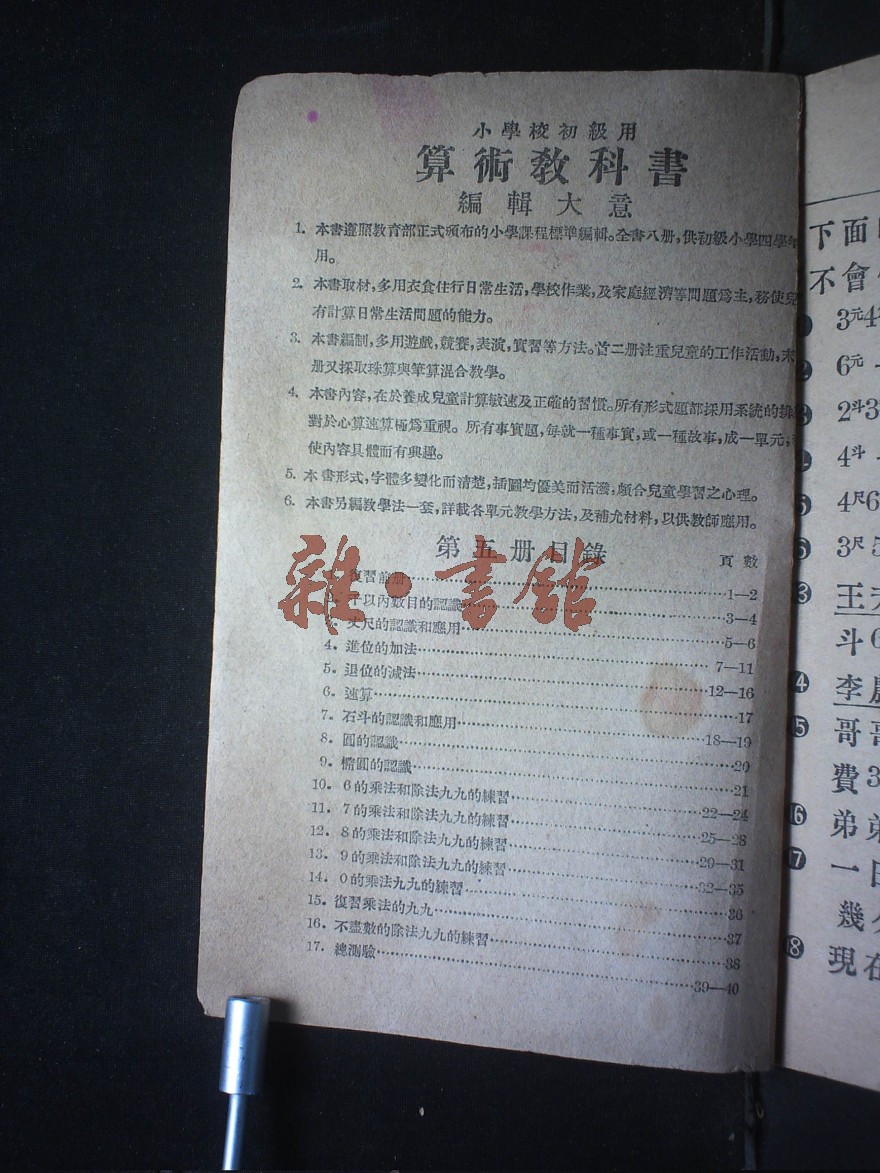 小學校初級用
算術教科書
編輯大意
1. 本書遵照教育部正式頒布的小學課程標準編輯。全書八册,供初級小學四學年
用。
2. 本書取材,多用衣食住行日常生活,學校作業,及家庭經濟等問題爲主,務使兒
有計算日常生活問題的能力。
3. 本書編制,多用遊戲,競賽,表演,實習等方法。首二册注重兒童的工作活動,末
册又採取珠算與筆算混合教學。
4. 本書內容,在於養成兒童計算敏速及正確的習慣。所有形式題都採用系統的排
對於心算速算極爲重視。所有事實題,每就一種事實,或一種故事,成一單元,
使內容具體而有興趣。
5. 本書形式,字體多變化而清楚,插圖均優美而活潑,頗合兒童學習之心理。
6. 本書另編教學法一套,詳載各單元教學方法,及補充材料,以供教師應用。
第五册目錄
頁數
雜·書館
1. 復習前册……1—2
2. 千以內數目的認識……3—4
3. 丈尺的認識和應用……5—6
4. 進位的加法……7—11
5. 退位的減法……12—16
6. 速算……17
7. 石斗的認識和應用……18—19
8. 圓的認識……20
9. 橢圓的認識……21
10. 6的乘法和除法九九的練習……22—24
11. 7的乘法和除法九九的練習……25—28
12. 8的乘法和除法九九的練習……29—31
13. 9的乘法和除法九九的練習……32—35
14. 0的乘法九九的練習……36
15. 復習乘法的九九……37
16. 不盡數的除法九九的練習……38
17. 總測驗……39—40
下面
不會
3元4
6元
2斗3
4斗
4尺6
3尺5
王
斗6
李
哥
費3
弟
一
幾
現在